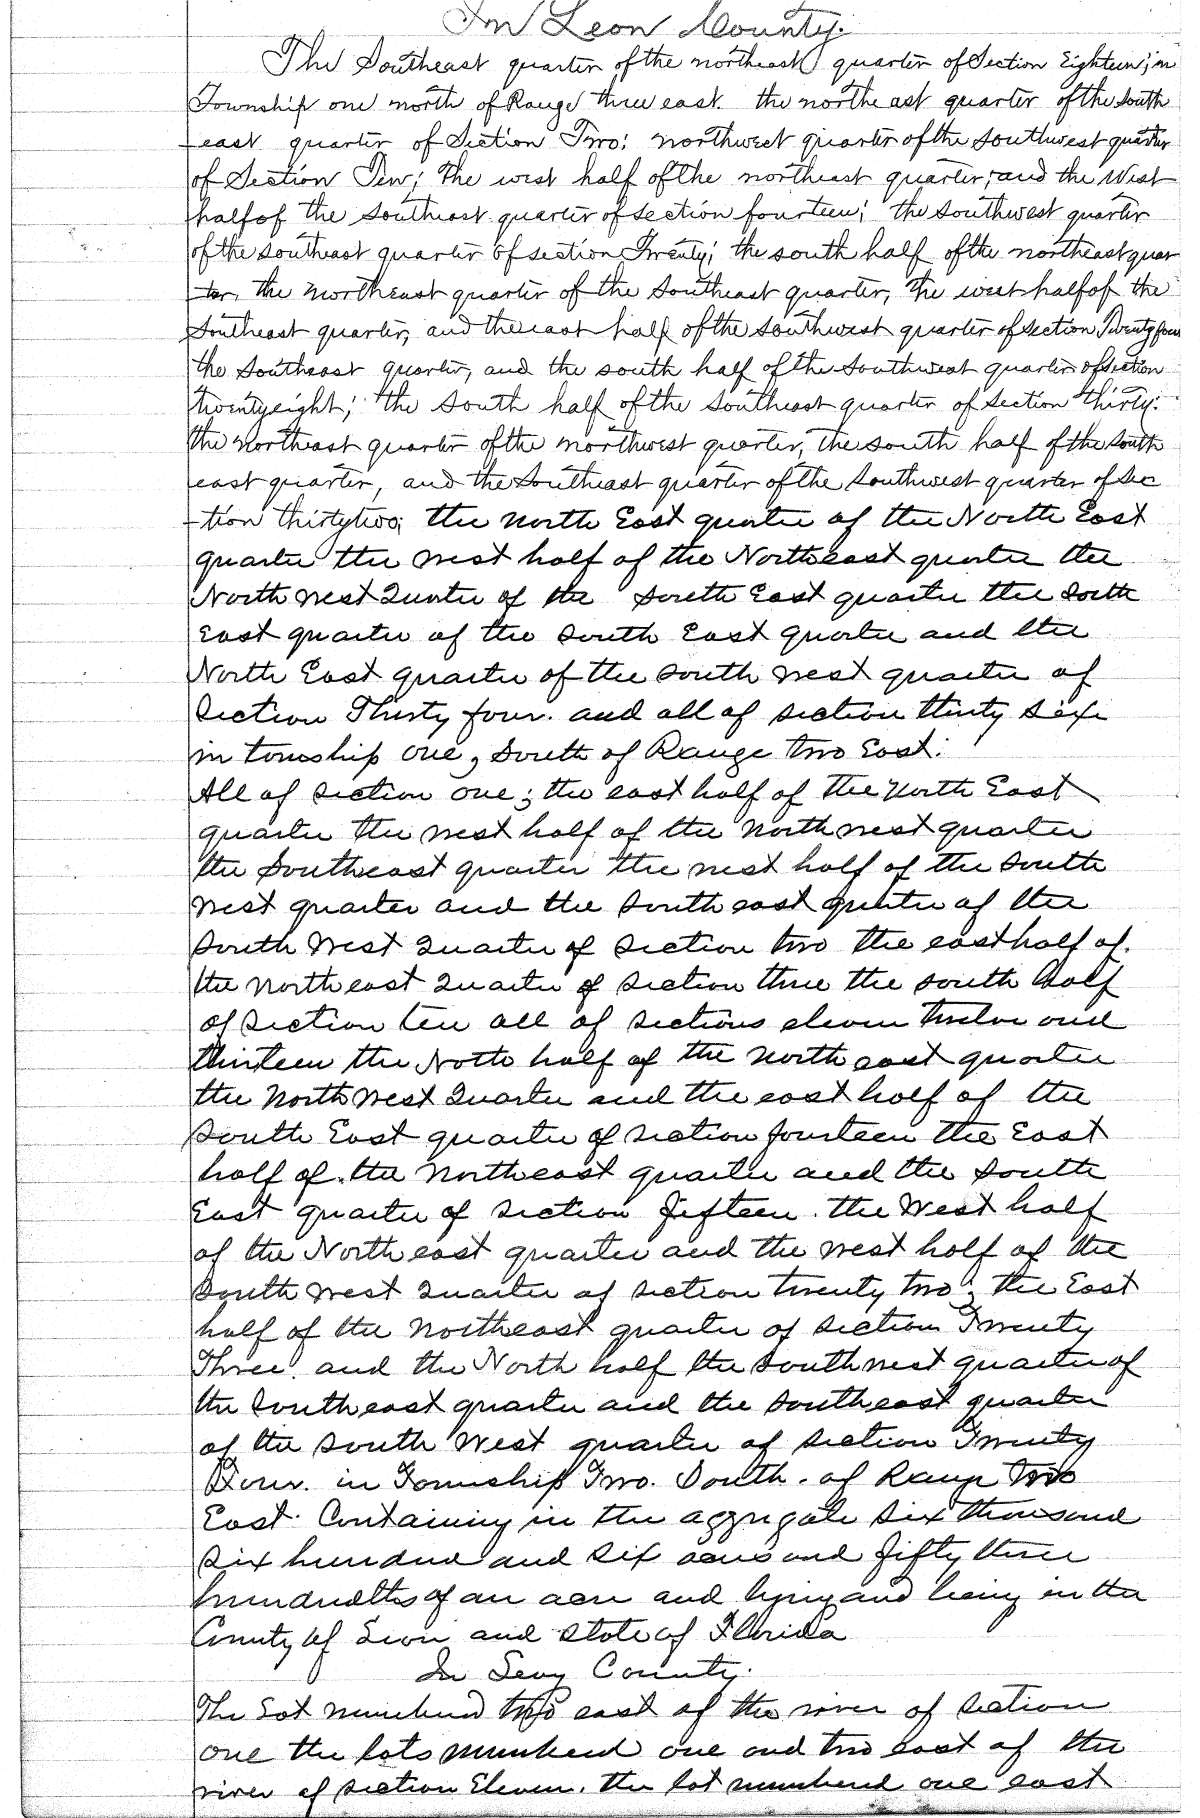 In Leon County.
The Southeast quarter of the northeast quarter of Section Eighteen; in
Township one north of Range three east. the northeast quarter of the south
east quarter of Section Two; northwest quarter of the southwest quarter
of Section Ten; the west half of the northeast quarter; and the West
half of the Southeast quarter of section fourteen; the southwest quarter
of the southeast quarter of section Twenty; the south half of the northeast quar
ter, the northeast quarter of the Southeast quarter, the west half of the
Southeast quarter, and the east half of the Southwest quarter of section Twenty four
the Southeast quarter, and the south half of the Southwest quarter of section
twenty eight; the South half of the Southeast quarter of Section thirty;
the northeast quarter of the northwest quarter, the south half of the South
east quarter, and the Southeast quarter of the Southwest quarter of Sec
tion thirty two; the North East quarter of the North East
quarter the west half of the North east quarter the
North west Quarter of the South East quarter the South
East quarter of the South East quarter and the
North East quarter of the South west quarter of
Section Thirty four. and all of section thirty Six
in township one, South of Range two East:
All of section one; the east half of the North East
quarter the west half of the North west quarter
the Southeast quarter the west half of the South
west quarter and the South east quarter of the
South West Quarter of Section two the east half of.
the North east Quarter of Section three the South half
of Section ten all of sections eleven Twelve and
thirteen the Noth half of the North east quarter
the North West Quarter and the east half of the
South East quarter of section fourteen the East
half of the North east quarter and the South
East quarter of Section fifteen. the West half
of the North east quarter and the west half of the
South West Quarter of Section twenty two; the East
half of the Northeast quarter of Section Twenty
Three. and the North half the South west quarter of
the South east quarter and the South east quarter
of the South West quarter of Section Twenty
Four. in Township Two. South. of Range Two
East. Containing in the aggregate Six thousand
Six hundred and Six acres and fifty three
hundredths of an acre and lying and being in the
County of Leon and State of Florida
In Levy County.
The Lot numbered two east of the river of Section
one the lots numbered one and two east of the
river of Section Eleven. the lot numbered one east